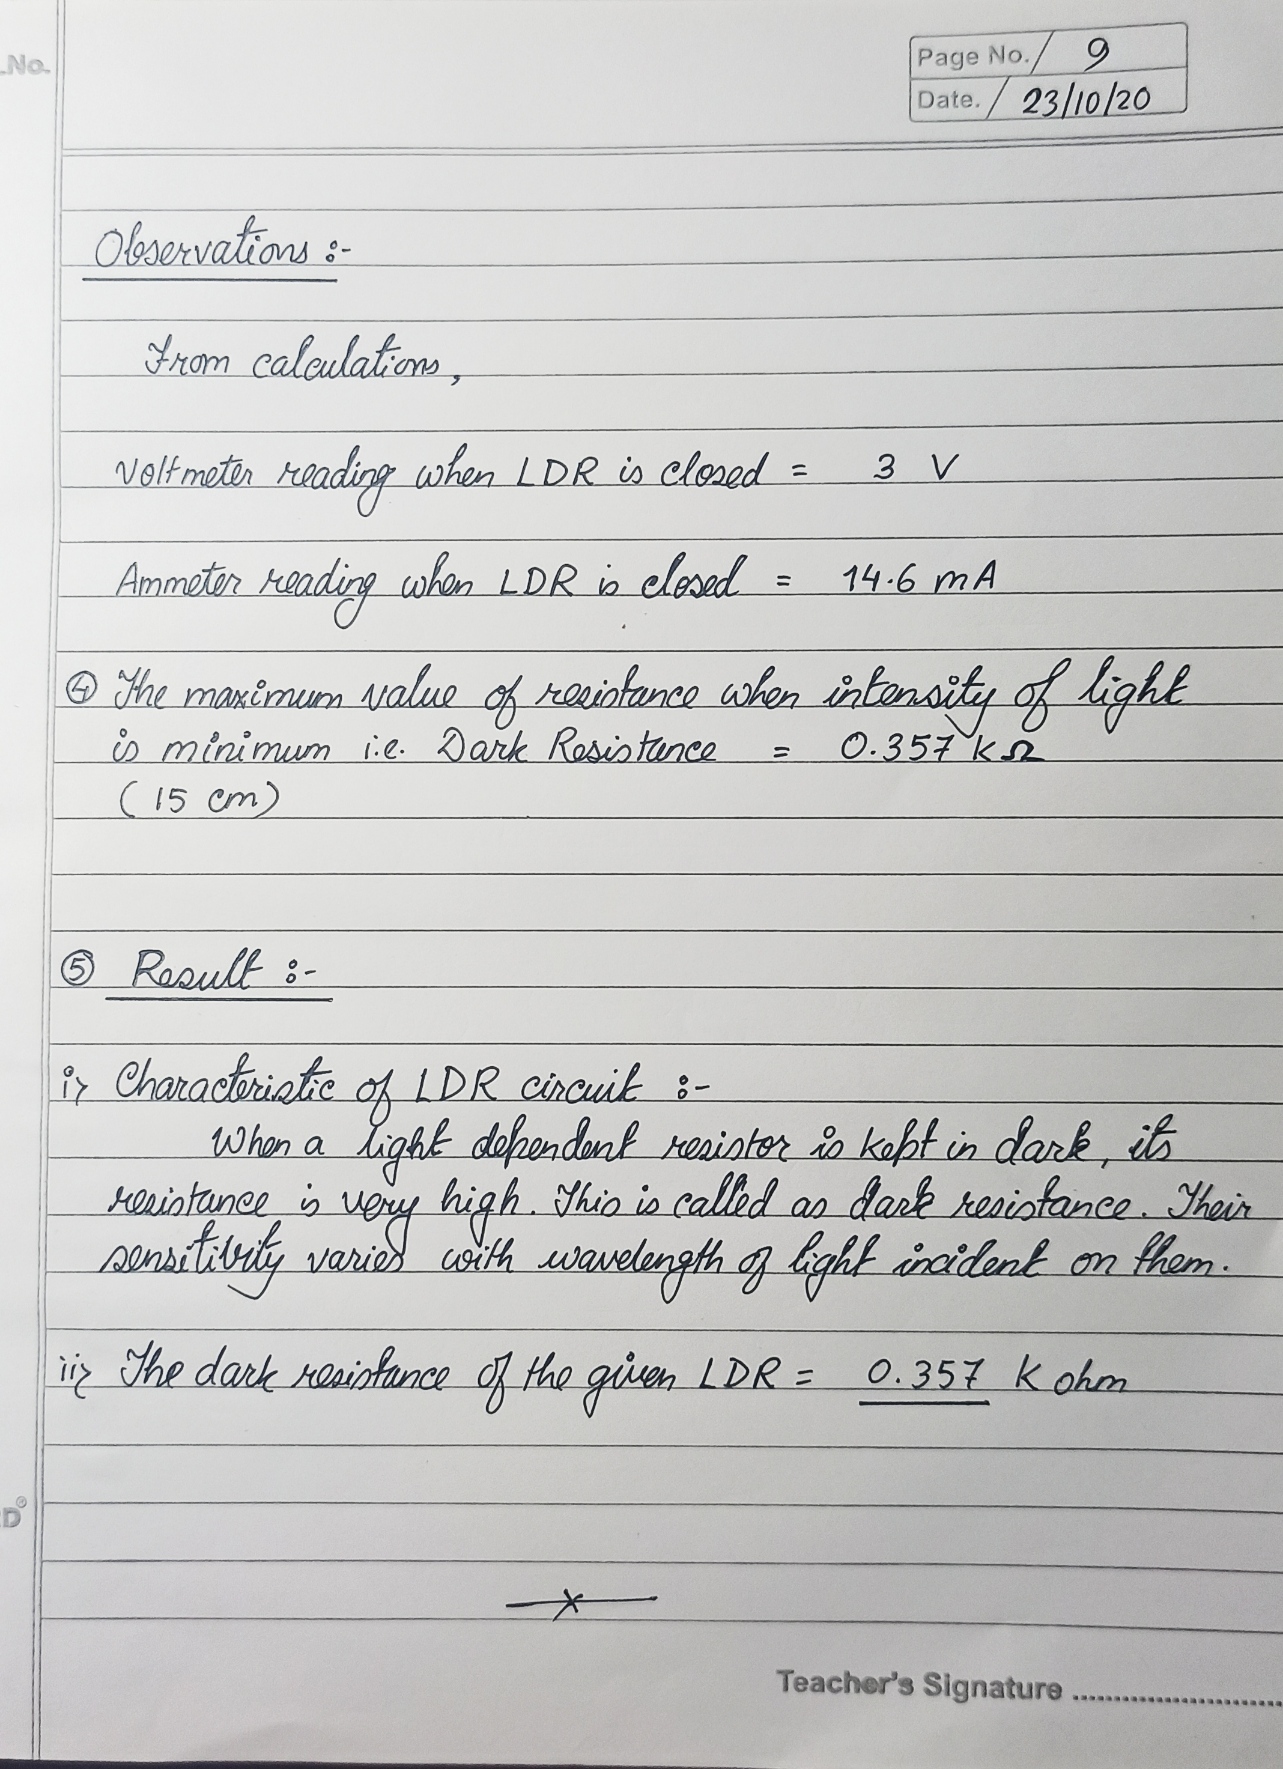 .No.
Page No. 9
Date. 23/10/20
Observations :-
From calculations,
Voltmeter reading when LDR is closed = 3 V
Ammeter reading when LDR is closed = 14.6 mA
④ The maximum value of resistance when intensity of light
is minimum i.e. Dark Resistance = 0.357 kΩ
(15 cm)
⑤ Result :-
i> Characteristic of LDR circuit :-
When a light dependent resistor is kept in dark, its
resistance is very high. This is called as dark resistance. Their
sensitivity varies with wavelength of light incident on them.
ii> The dark resistance of the given LDR = 0.357 K ohm
D®
Teacher's Signature ........................